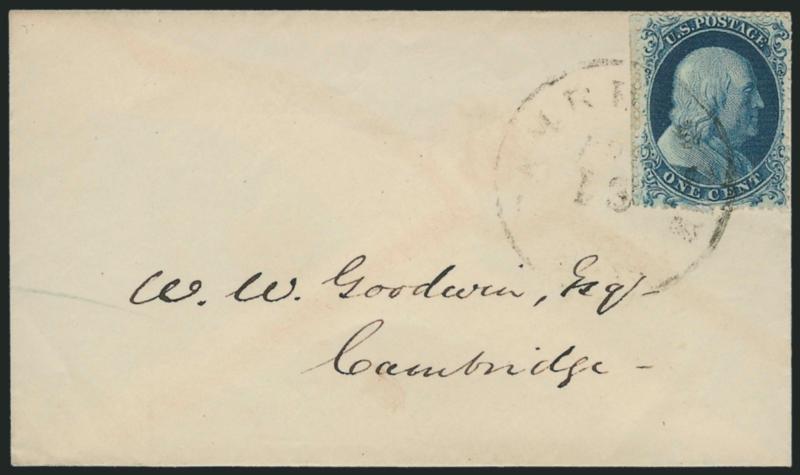 U.S. POSTAGE
ONE CENT
W. W. Goodwin, Esq.
Cambridge.